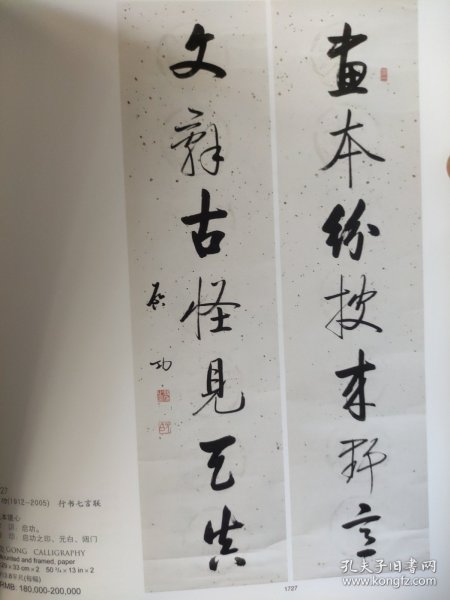 畫本紛披来野意
文辭古怪見天真
啟功
1727
27
功(1912-2005) 行书七言联
本镜心
印：启功。
印：启功之印、元白、
GONG CALLIGRAPHY
ounted and framed, paper
29 × 33 cm × 2 50 ¾ × 13 in × 2
RMB: 180,000-200,000
孔夫子旧书网
www.kongfz.com